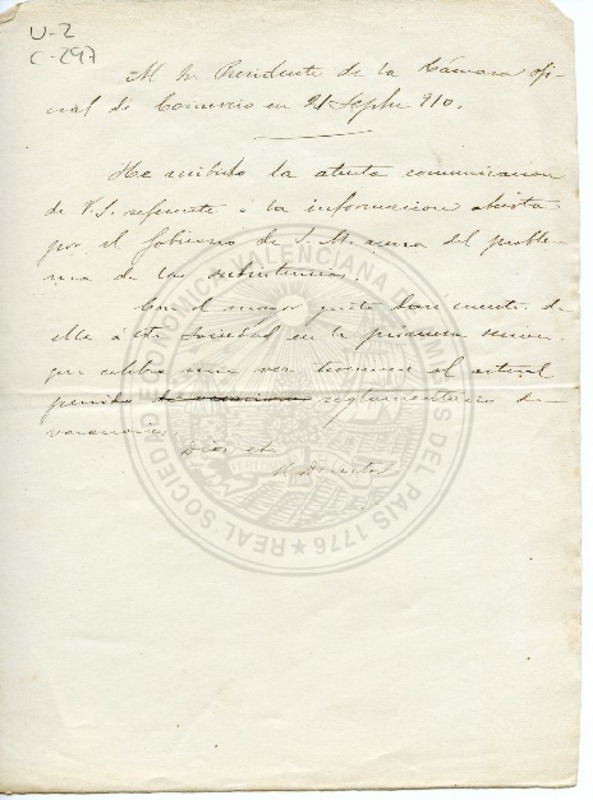 U-2
C-297
Al Sr. Presidente de la Cámara ofi-
cial de Comercio en 21 Sepbre 910.
He recibido la atenta comunicacion
de V.S. referente á la informacion abierta
por el Gobierno de S. M. acerca del proble-
ma de las subsistencias.
Con el mayor gusto daré cuenta de
ella á esta Sociedad en la primera sesion
que celebre una vez termine el actual
periodo de vacaciones reglamentario de
vacaciones.
Dios etc.
El Director
REAL SOCIEDAD ECONOMICA VALENCIANA DE AMIGOS DEL PAIS 1776